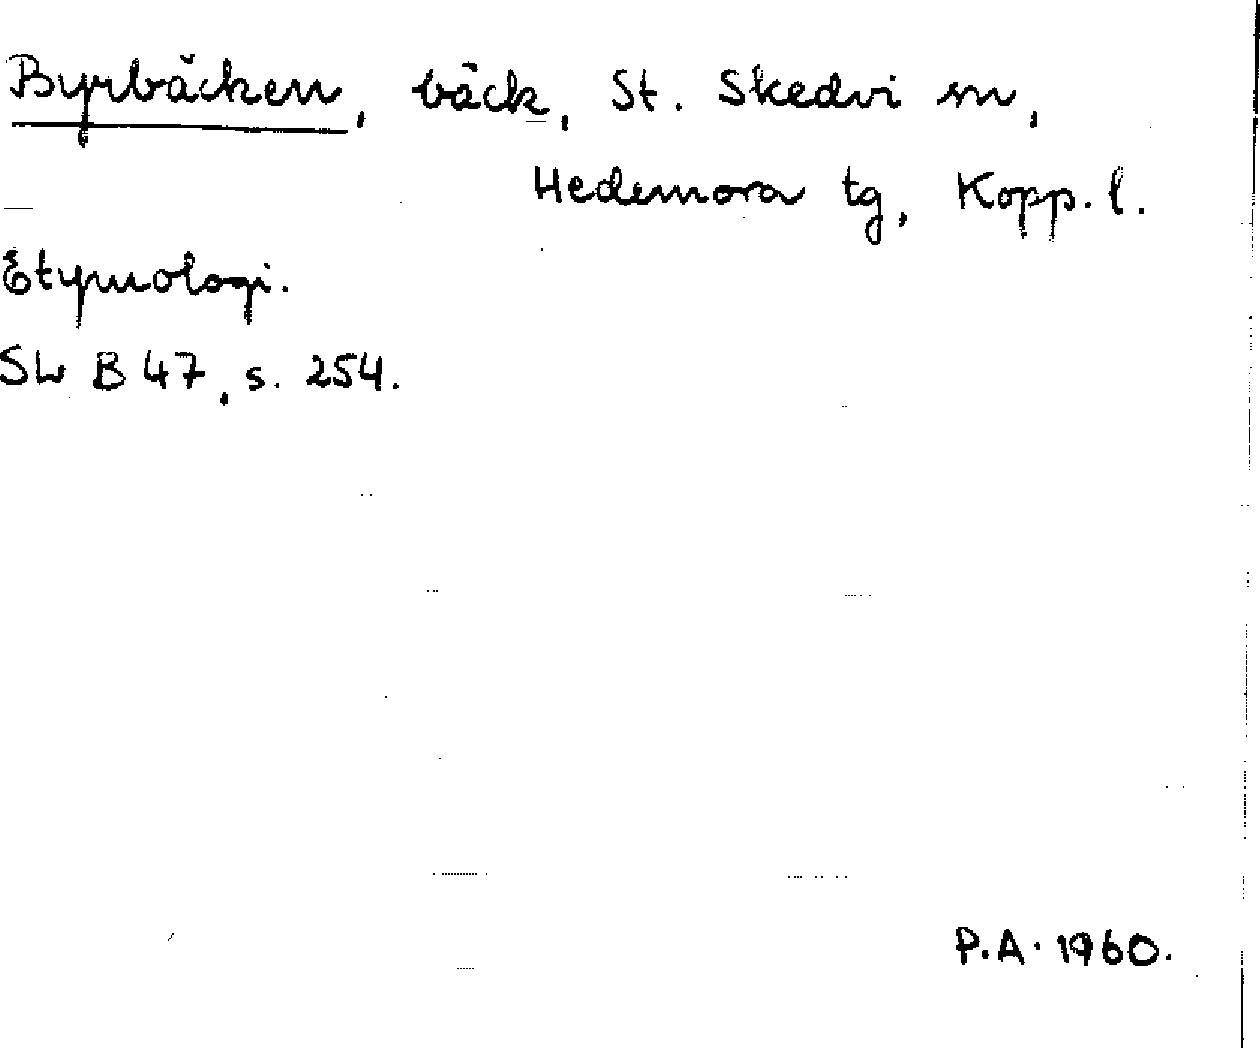 Byrbäcken, bäck, St. Skedvi sn,
Hedemora tg, Kopp. l.
Etymologi.
SL B 47, s. 254.
P.A. 1960.